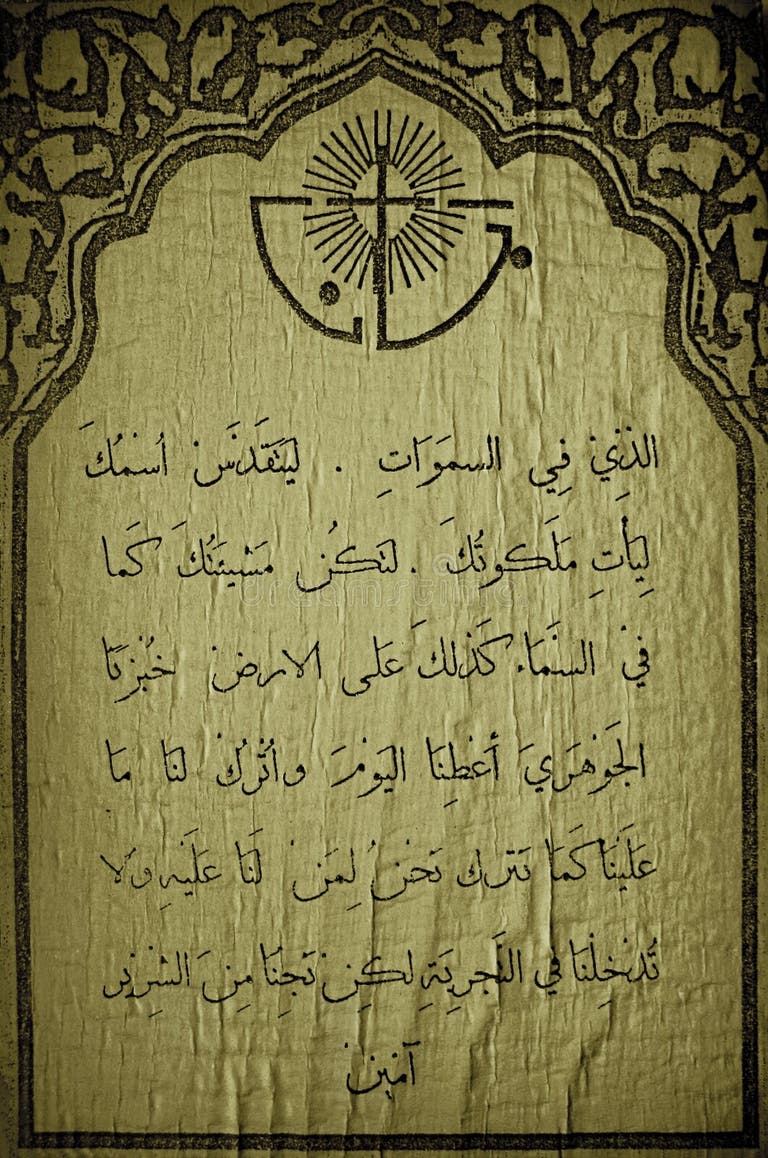 أبانا
الذِّي فِي السمَوَاتِ . ليَتَقَدَّسَ أسْمُكَ
لِيَأتِ مَلَكوتُكَ . لتَكُن مَشيئَتُكَ كَما
فيْ السَّمَاء كَذلكَ عَلى الارض خُبْزنَا
الجَوْهَرَيَ أعْطِنَا اليَوْمَ وأتْرُكْ لنَا مَا
عَلَيْنَا كَمَا نَترك نَحْنُ لِمَنْ لَنَا عَلَيْهِ وَلا
تُدْخِلْنَا في التَّجرِبَةِ لكِن نَجِّنَا مِنَ الشِّرْير
آمَين
dreamstime